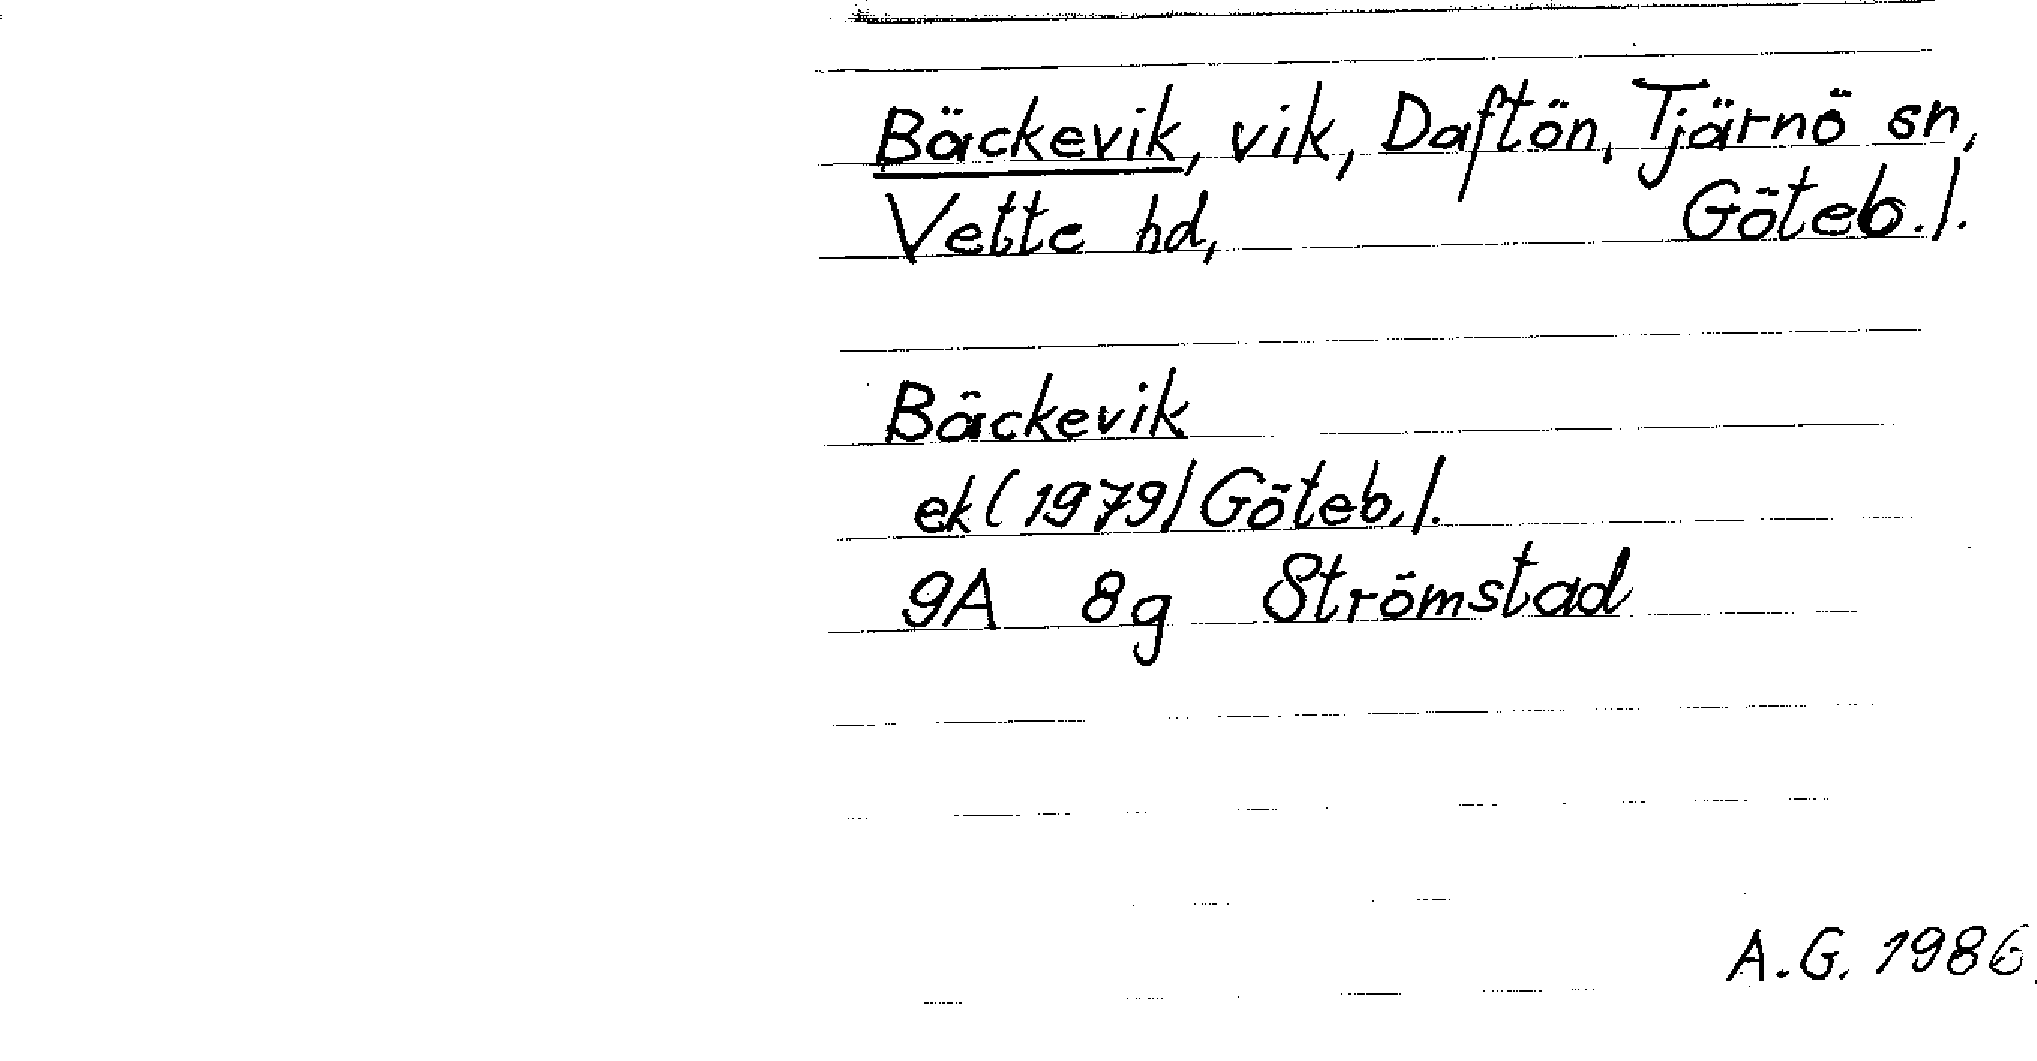 Bäckevik, vik, Daftön, Tjärnö sn,
Vette hd, Göteb. l.
Bäckevik
ek (1979) Göteb. l.
9A 8g Strömstad
A.G. 1986.